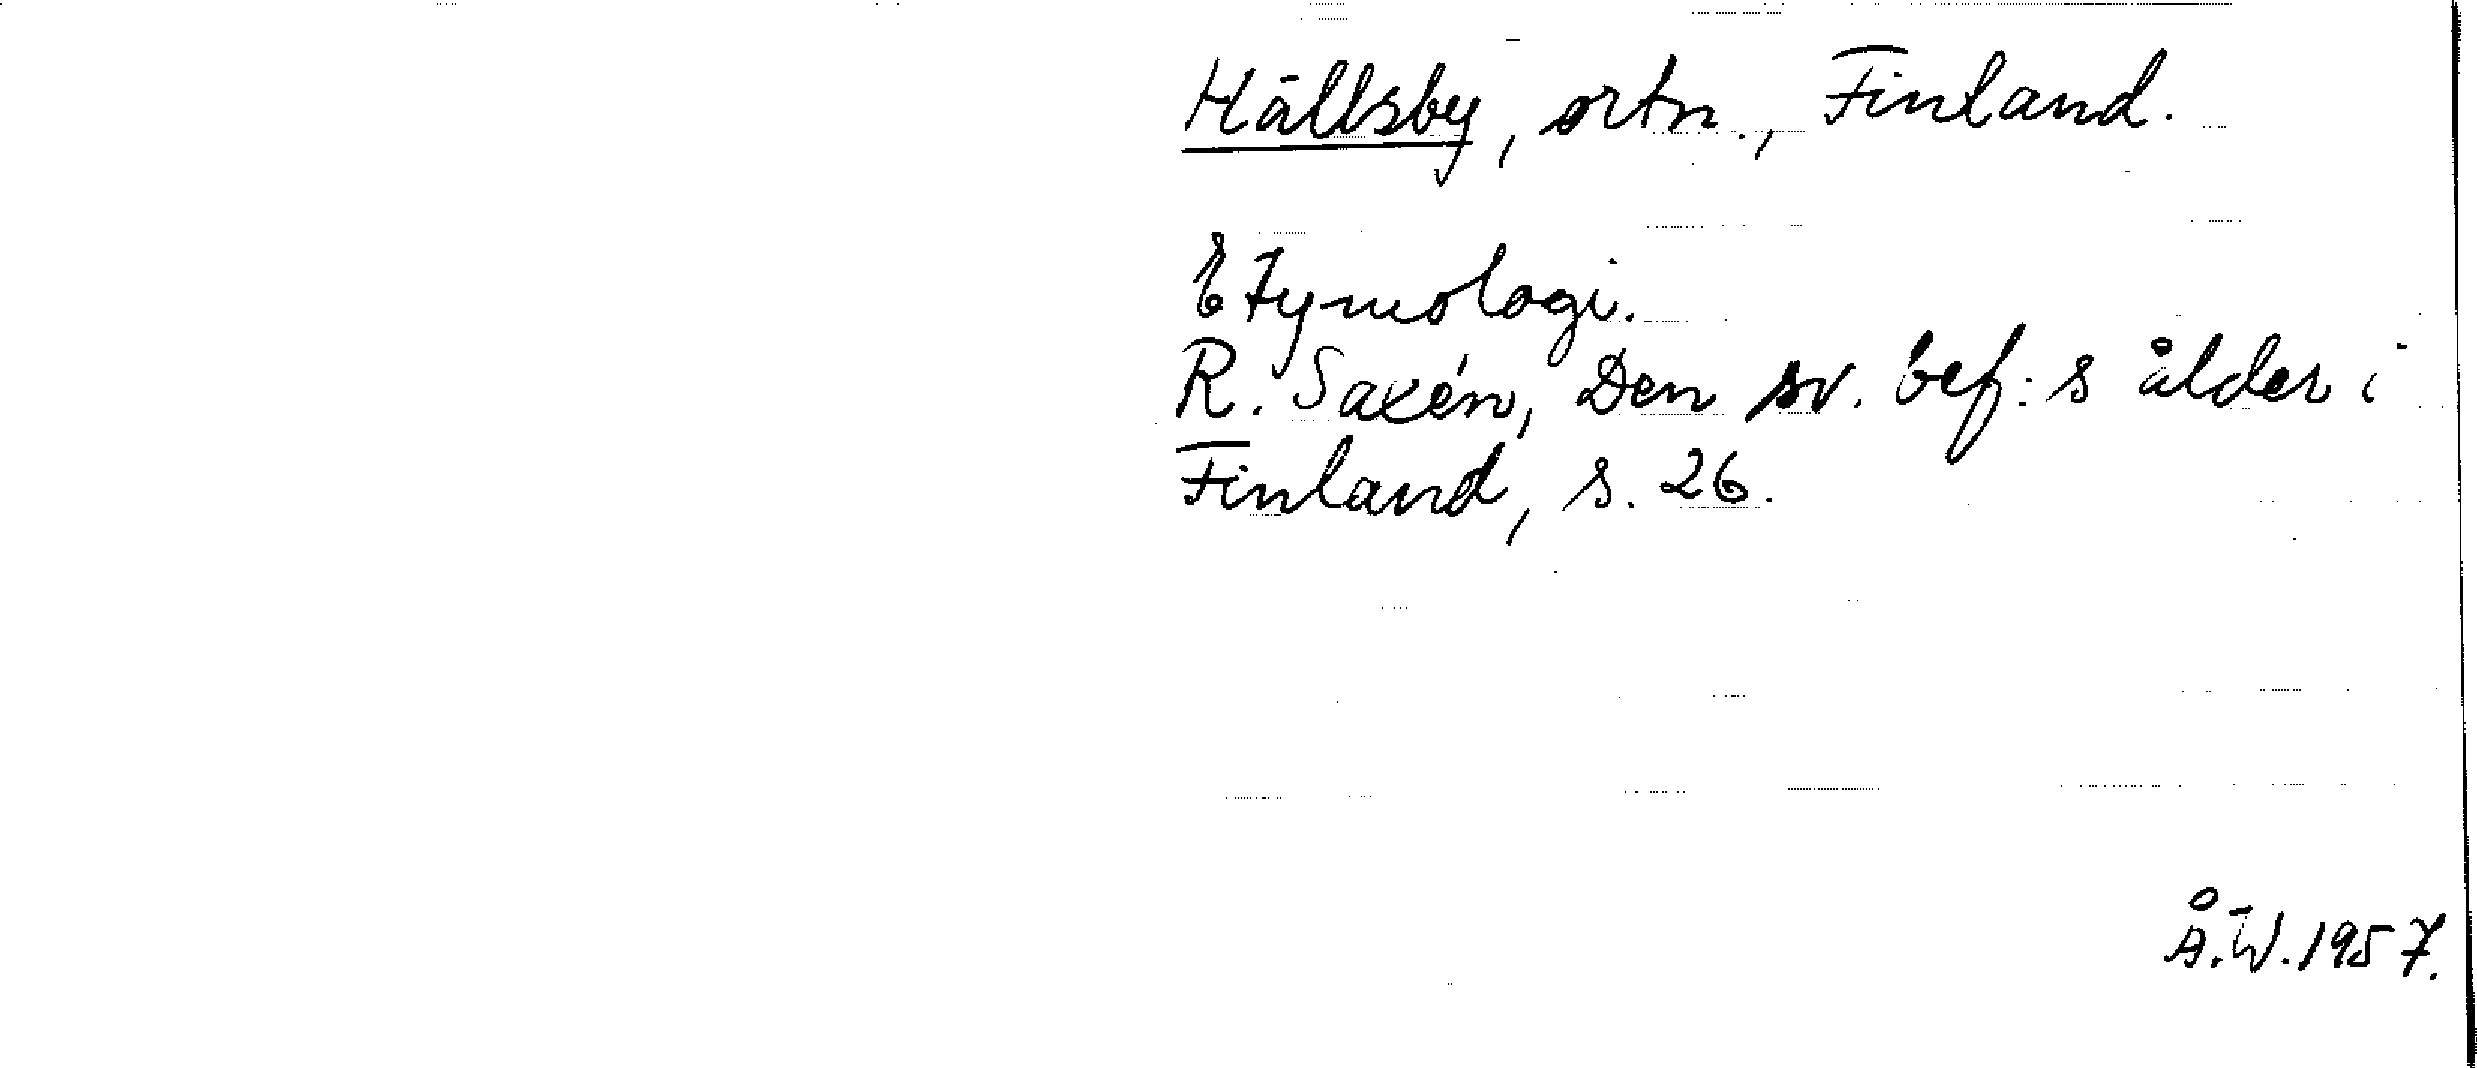 Hällsby, ortn., Finland.
Etymologi.
R. Saxén, Den sv. bef:s ålder i
Finland, s. 26.
Å.W. 1957.